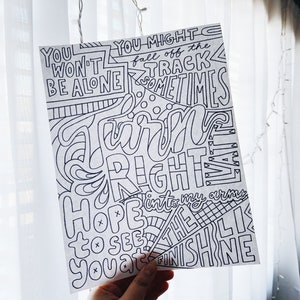 YOU WON'T BE ALONE
YOU MIGHT
fall off the
TRACK
SOMETIMES
Turn
RIGHT
into my arms
HOPE
to see
you at
THE